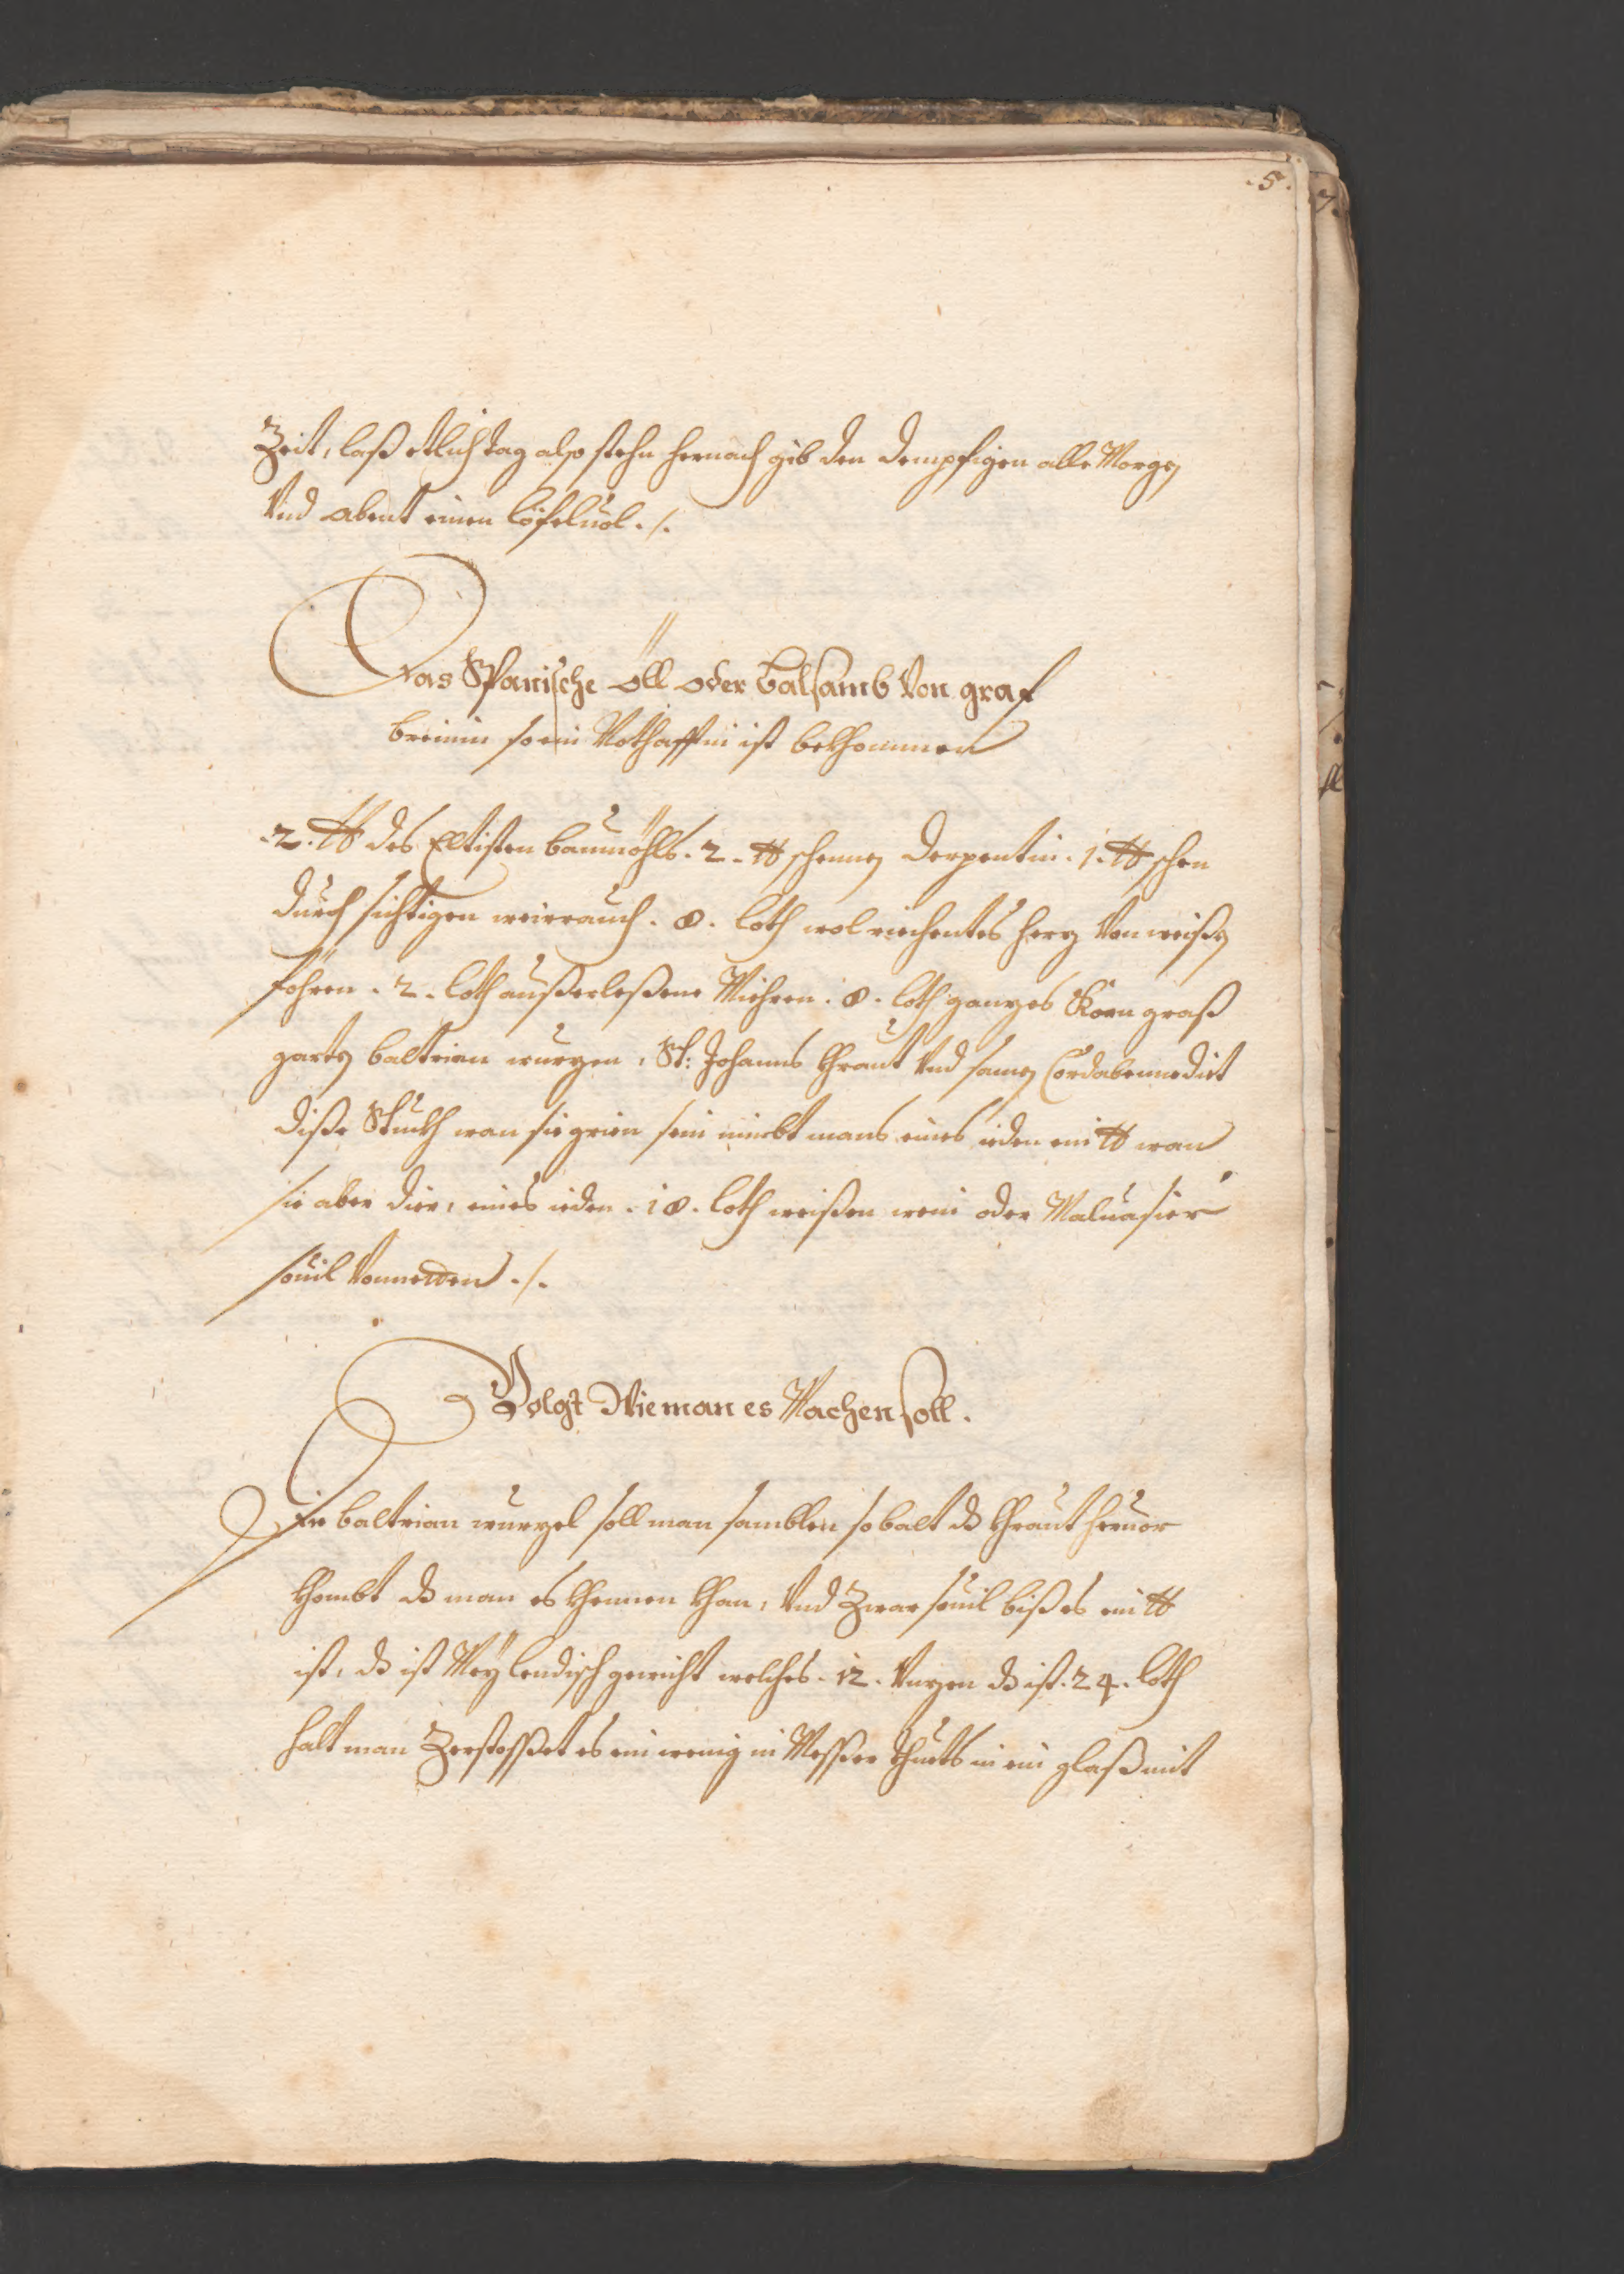 .5.
Zeit, laß etlich tag also stehn hernach gib den dempfigen alle Morgen
Vnd abent einen löfeluol ./.
Das Spanische öll oder balsamb Von graf
breinin so ein Nothafftin ist bekhommen
.2. ℔ des Eltisten baumöhls . 2 . ℔ schennen derpentin . 1. ℔ schen
durch sichtigen weirrauch . 8 . loth wol riechentes harz Von weißen
föhren . 2 . loth außerleßene Mirhren . 8 . loth ganzes Korn graß
garten baltrian wurzen, St: Johanns Khraut Vnd samen Cordabennedict
diße Stuckh wan sie grien sein nimbt mans eines ieden ein ℔ wan
sie aber dirr, eines ieden . 18 . loth weißen wein oder Maluasier
souil Vonnetten ./.
Volgt Wie man es Machen soll.
Die baltrian wurzel soll man samblen so balt dz Khraut heruor
khombt dz man es khennen khan, Vnd Zwar souil biß es ein ℔
ist, dz ist Meylendisch gewicht welches . 12 . Vnzen dz ist . 24 . loth
halt man Zerstosset es ein wenig in Messer thuets in ein glaß mit